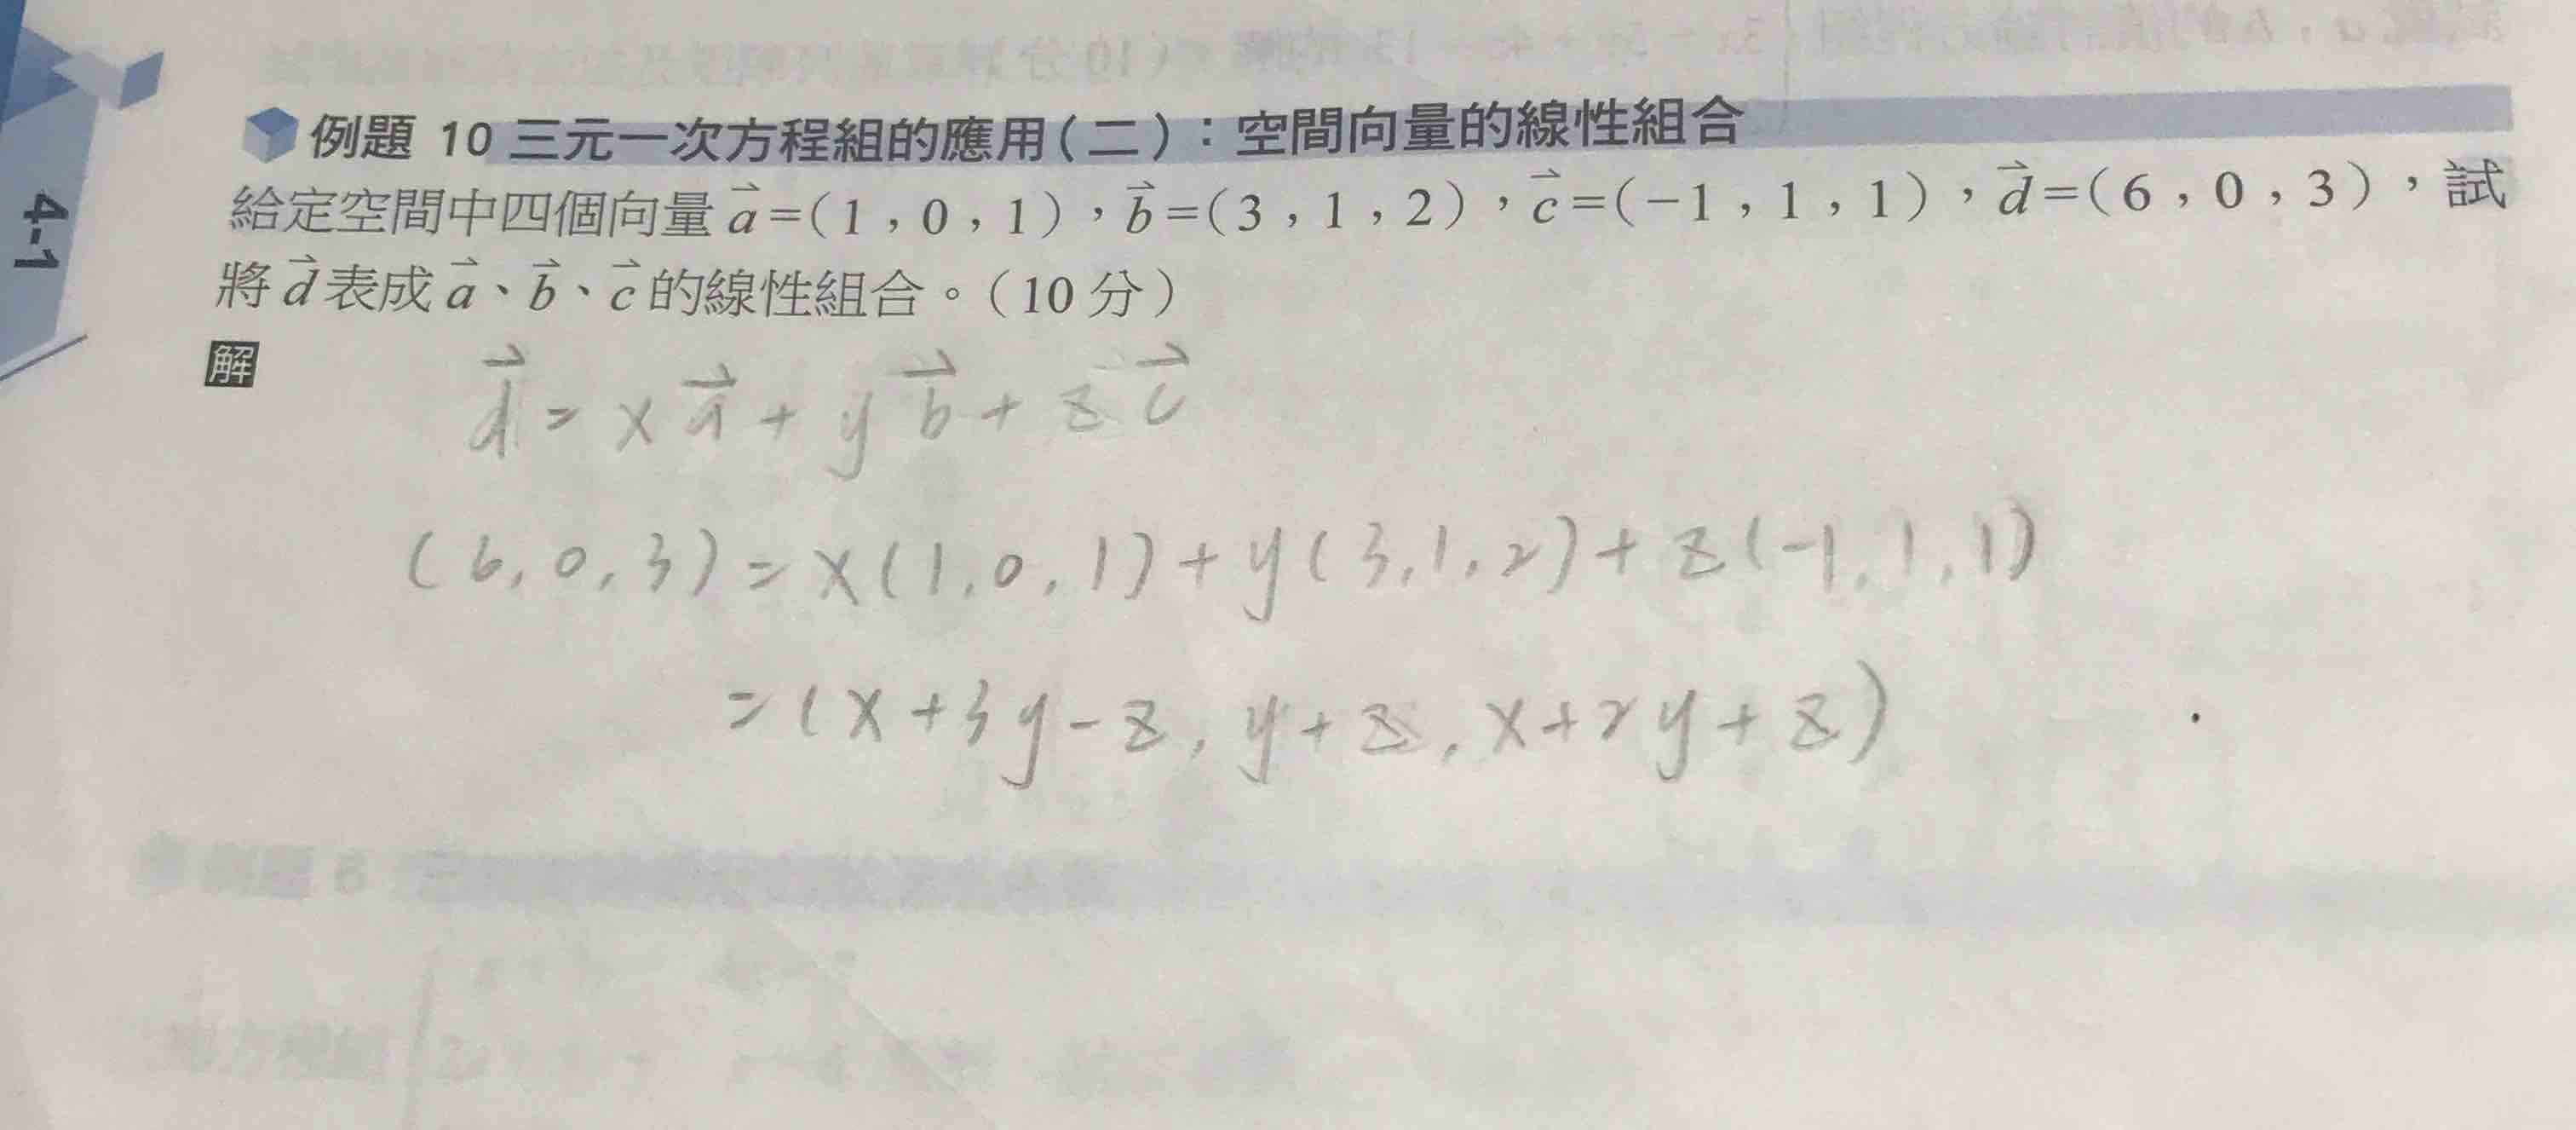 4-1
例題 10 三元一次方程組的應用(二)：空間向量的線性組合
給定空間中四個向量 a⃗=(1，0，1)，b⃗=(3，1，2)，c⃗=(−1，1，1)，d⃗=(6，0，3)，試
將 d⃗ 表成 a⃗、b⃗、c⃗ 的線性組合。(10 分)
解
d⃗ = x a⃗ + y b⃗ + z c⃗
(6, 0, 3) = x(1, 0, 1) + y(3, 1, 2) + z(-1, 1, 1)
= (x + 3y - z, y + z, x + 2y + z)